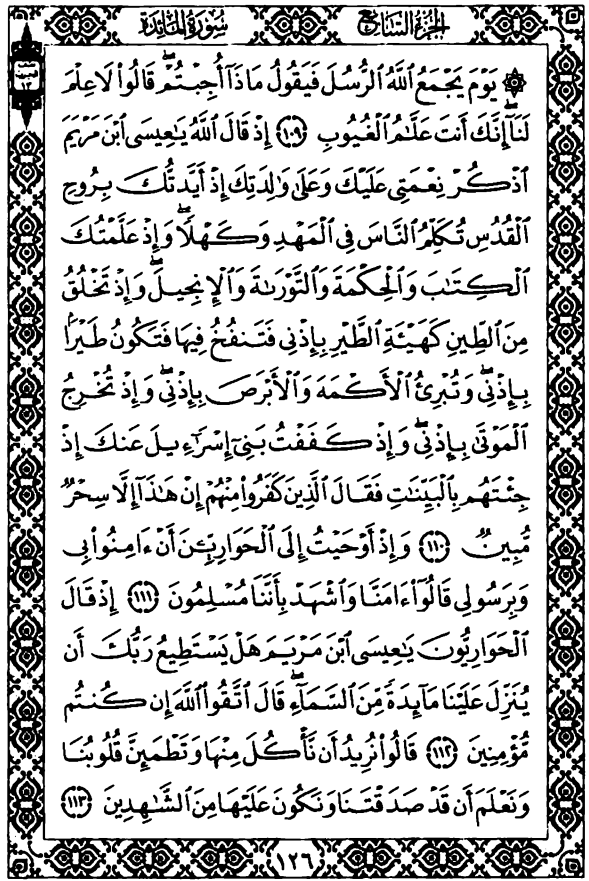 الجزء السابع
سورة المائدة
۞ يَوْمَ يَجْمَعُ ٱللَّهُ ٱلرُّسُلَ فَيَقُولُ مَاذَآ أُجِبْتُمْۖ قَالُوا۟ لَا عِلْمَ
لَنَآۖ إِنَّكَ أَنتَ عَلَّـٰمُ ٱلْغُيُوبِ ١٠٩ إِذْ قَالَ ٱللَّهُ يَـٰعِيسَى ٱبْنَ مَرْيَمَ
ٱذْكُرْ نِعْمَتِى عَلَيْكَ وَعَلَىٰ وَٰلِدَتِكَ إِذْ أَيَّدتُّكَ بِرُوحِ
ٱلْقُدُسِ تُكَلِّمُ ٱلنَّاسَ فِى ٱلْمَهْدِ وَكَهْلًاۖ وَإِذْ عَلَّمْتُكَ
ٱلْكِتَـٰبَ وَٱلْحِكْمَةَ وَٱلتَّوْرَىٰةَ وَٱلْإِنجِيلَۖ وَإِذْ تَخْلُقُ
مِنَ ٱلطِّينِ كَهَيْـَٔةِ ٱلطَّيْرِ بِإِذْنِى فَتَنفُخُ فِيهَا فَتَكُونُ طَيْرًۢا
بِإِذْنِىۖ وَتُبْرِئُ ٱلْأَكْمَهَ وَٱلْأَبْرَصَ بِإِذْنِىۖ وَإِذْ تُخْرِجُ
ٱلْمَوْتَىٰ بِإِذْنِىۖ وَإِذْ كَفَفْتُ بَنِىٓ إِسْرَٰٓءِيلَ عَنكَ إِذْ
جِئْتَهُم بِٱلْبَيِّنَـٰتِ فَقَالَ ٱلَّذِينَ كَفَرُوا۟ مِنْهُمْ إِنْ هَـٰذَآ إِلَّا سِحْرٌ
مُّبِينٌ ١١٠ وَإِذْ أَوْحَيْتُ إِلَى ٱلْحَوَارِيِّـۧنَ أَنْ ءَامِنُوا۟ بِى
وَبِرَسُولِى قَالُوٓا۟ ءَامَنَّا وَٱشْهَدْ بِأَنَّنَا مُسْلِمُونَ ١١١ إِذْ قَالَ
ٱلْحَوَارِيُّونَ يَـٰعِيسَى ٱبْنَ مَرْيَمَ هَلْ يَسْتَطِيعُ رَبُّكَ أَن
يُنَزِّلَ عَلَيْنَا مَآئِدَةً مِّنَ ٱلسَّمَآءِۖ قَالَ ٱتَّقُوا۟ ٱللَّهَ إِن كُنتُم
مُّؤْمِنِينَ ١١٢ قَالُوا۟ نُرِيدُ أَن نَّأْكُلَ مِنْهَا وَتَطْمَئِنَّ قُلُوبُنَا
وَنَعْلَمَ أَن قَدْ صَدَقْتَنَا وَنَكُونَ عَلَيْهَا مِنَ ٱلشَّـٰهِدِينَ ١١٣
١٢٦